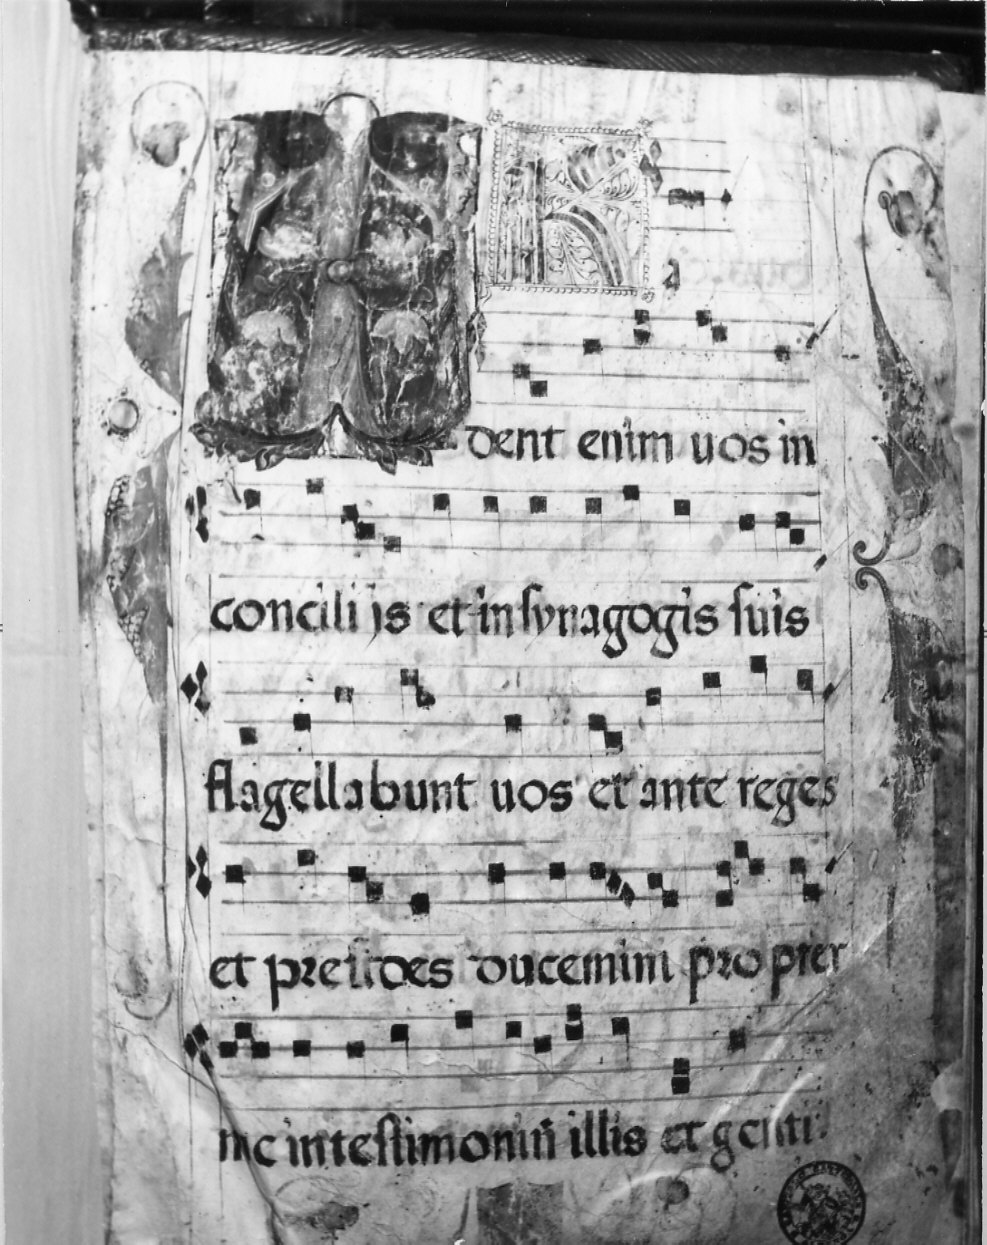 TRA
dent enim uos in
concilijs et in synagogis suis
flagellabunt uos et ante reges
et presides ducemini propter
me in testimoniū illis et genti